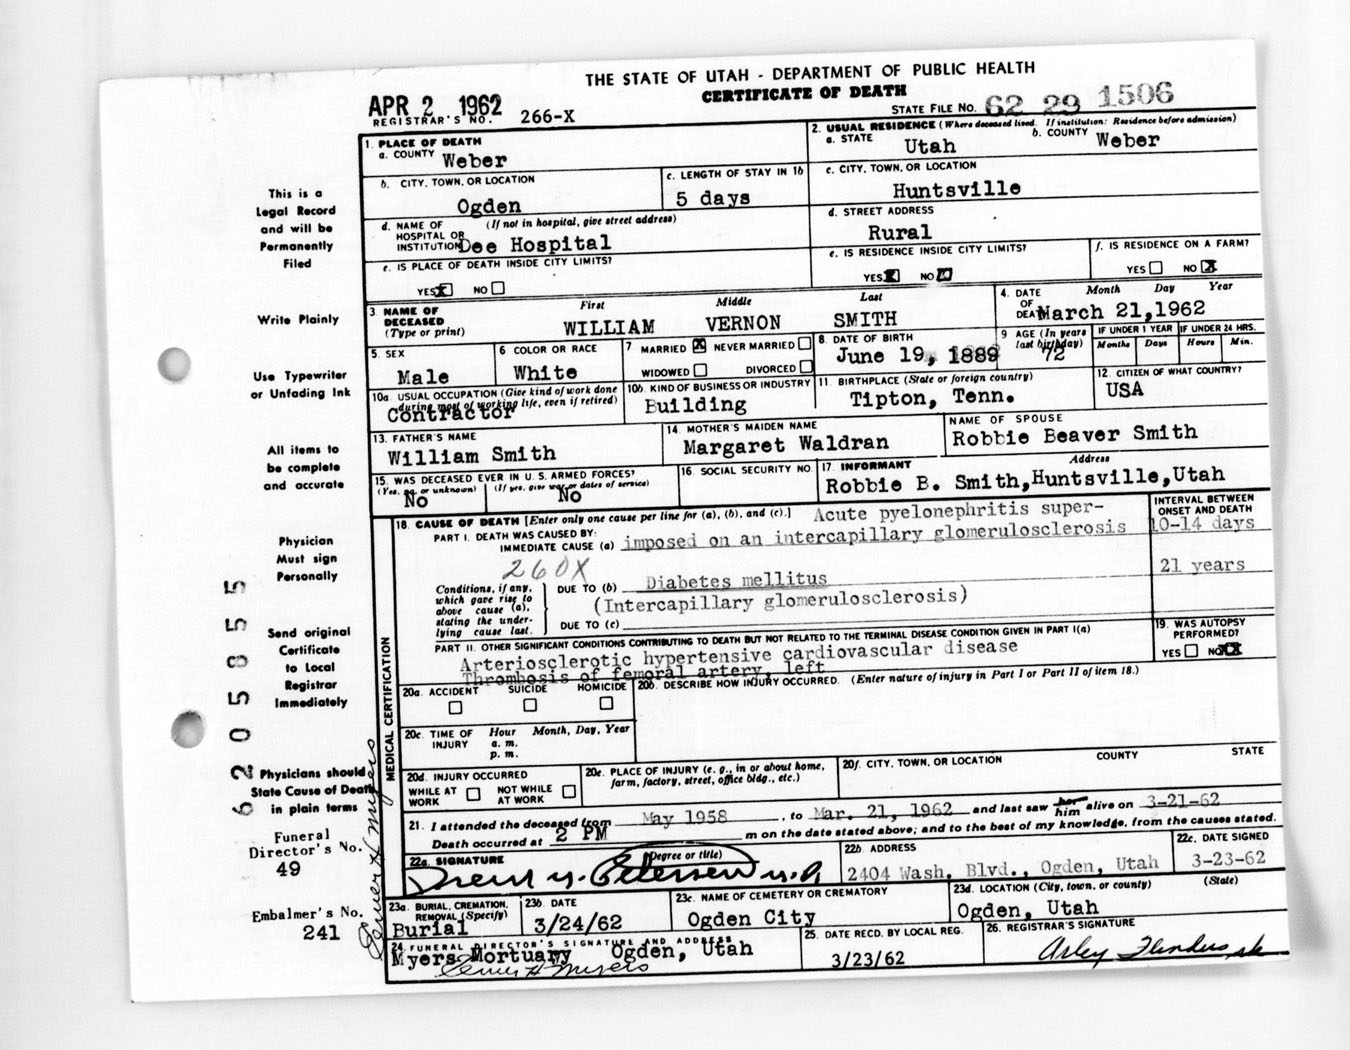 THE STATE OF UTAH - DEPARTMENT OF PUBLIC HEALTH
CERTIFICATE OF DEATH
APR 2 1962
REGISTRAR'S NO. 266-X
STATE FILE NO. 62 29 1506
1. PLACE OF DEATH
a. COUNTY Weber
2. USUAL RESIDENCE (Where deceased lived. If institution: Residence before admission)
a. STATE Utah b. COUNTY Weber
b. CITY, TOWN, OR LOCATION
Ogden
c. LENGTH OF STAY IN 1b
5 days
c. CITY, TOWN, OR LOCATION
Huntsville
d. NAME OF HOSPITAL OR INSTITUTION (If not in hospital, give street address)
Dee Hospital
d. STREET ADDRESS
Rural
e. IS PLACE OF DEATH INSIDE CITY LIMITS?
YES NO
e. IS RESIDENCE INSIDE CITY LIMITS?
YES NO
f. IS RESIDENCE ON A FARM?
YES NO
3. NAME OF DECEASED (Type or print)
First Middle Last
WILLIAM VERNON SMITH
4. DATE OF DEATH
Month Day Year
March 21,1962
5. SEX
Male
6 COLOR OR RACE
White
7 MARRIED NEVER MARRIED
WIDOWED DIVORCED
8. DATE OF BIRTH
June 19, 1889
9 AGE (In years last birthday)
72
IF UNDER 1 YEAR
Months Days
IF UNDER 24 HRS.
Hours Min.
10a. USUAL OCCUPATION (Give kind of work done during most of working life, even if retired)
Contractor
10b. KIND OF BUSINESS OR INDUSTRY
Building
11. BIRTHPLACE (State or foreign country)
Tipton, Tenn.
12. CITIZEN OF WHAT COUNTRY?
USA
13. FATHER'S NAME
William Smith
14. MOTHER'S MAIDEN NAME
Margaret Waldran
NAME OF SPOUSE
Robbie Beaver Smith
15. WAS DECEASED EVER IN U. S. ARMED FORCES?
(Yes, no, or unknown) (If yes, give war or dates of service)
No No
16. SOCIAL SECURITY NO.
17. INFORMANT Address
Robbie B. Smith,Huntsville,Utah
18. CAUSE OF DEATH [Enter only one cause per line for (a), (b), and (c).]
PART I. DEATH WAS CAUSED BY:
IMMEDIATE CAUSE (a)
Acute pyelonephritis super-
imposed on an intercapillary glomerulosclerosis
INTERVAL BETWEEN ONSET AND DEATH
10-14 days
260X
Conditions, if any, which gave rise to above cause (a), stating the underlying cause last.
DUE TO (b) Diabetes mellitus
21 years
(Intercapillary glomerulosclerosis)
DUE TO (c)
PART II. OTHER SIGNIFICANT CONDITIONS CONTRIBUTING TO DEATH BUT NOT RELATED TO THE TERMINAL DISEASE CONDITION GIVEN IN PART I(a)
Arteriosclerotic hypertensive cardiovascular disease
Thrombosis of femoral artery, left
19. WAS AUTOPSY PERFORMED?
YES NO
20a. ACCIDENT SUICIDE HOMICIDE
20b. DESCRIBE HOW INJURY OCCURRED. (Enter nature of injury in Part I or Part II of item 18.)
20c. TIME OF INJURY Hour Month, Day, Year
a. m.
p. m.
20d. INJURY OCCURRED
WHILE AT WORK NOT WHILE AT WORK
20e. PLACE OF INJURY (e. g., in or about home, farm, factory, street, office bldg., etc.)
20f. CITY, TOWN, OR LOCATION COUNTY STATE
21. I attended the deceased from May 1958, to Mar. 21, 1962 and last saw her him alive on 3-21-62
Death occurred at 2 PM m on the date stated above; and to the best of my knowledge, from the causes stated.
22a. SIGNATURE (Degree or title)
22b. ADDRESS
2404 Wash. Blvd., Ogden, Utah
22c. DATE SIGNED
3-23-62
23a. BURIAL, CREMATION, REMOVAL (Specify)
Burial
23b. DATE
3/24/62
23c. NAME OF CEMETERY OR CREMATORY
Ogden City
23d. LOCATION (City, town, or county) (State)
Ogden, Utah
24. FUNERAL DIRECTOR'S SIGNATURE AND ADDRESS
Myers Mortuary Ogden, Utah
Elmer H Myers
25. DATE RECD. BY LOCAL REG.
3/23/62
26. REGISTRAR'S SIGNATURE
MEDICAL CERTIFICATION
This is a
Legal Record
and will be
Permanently
Filed
Write Plainly
Use Typewriter
or Unfading Ink
All items to
be complete
and accurate
Physician
Must sign
Personally
Send original
Certificate
to Local
Registrar
Immediately
Physicians should
State Cause of Death
in plain terms
Funeral
Director's No.
49
Embalmer's No.
241
Elmer H Myers